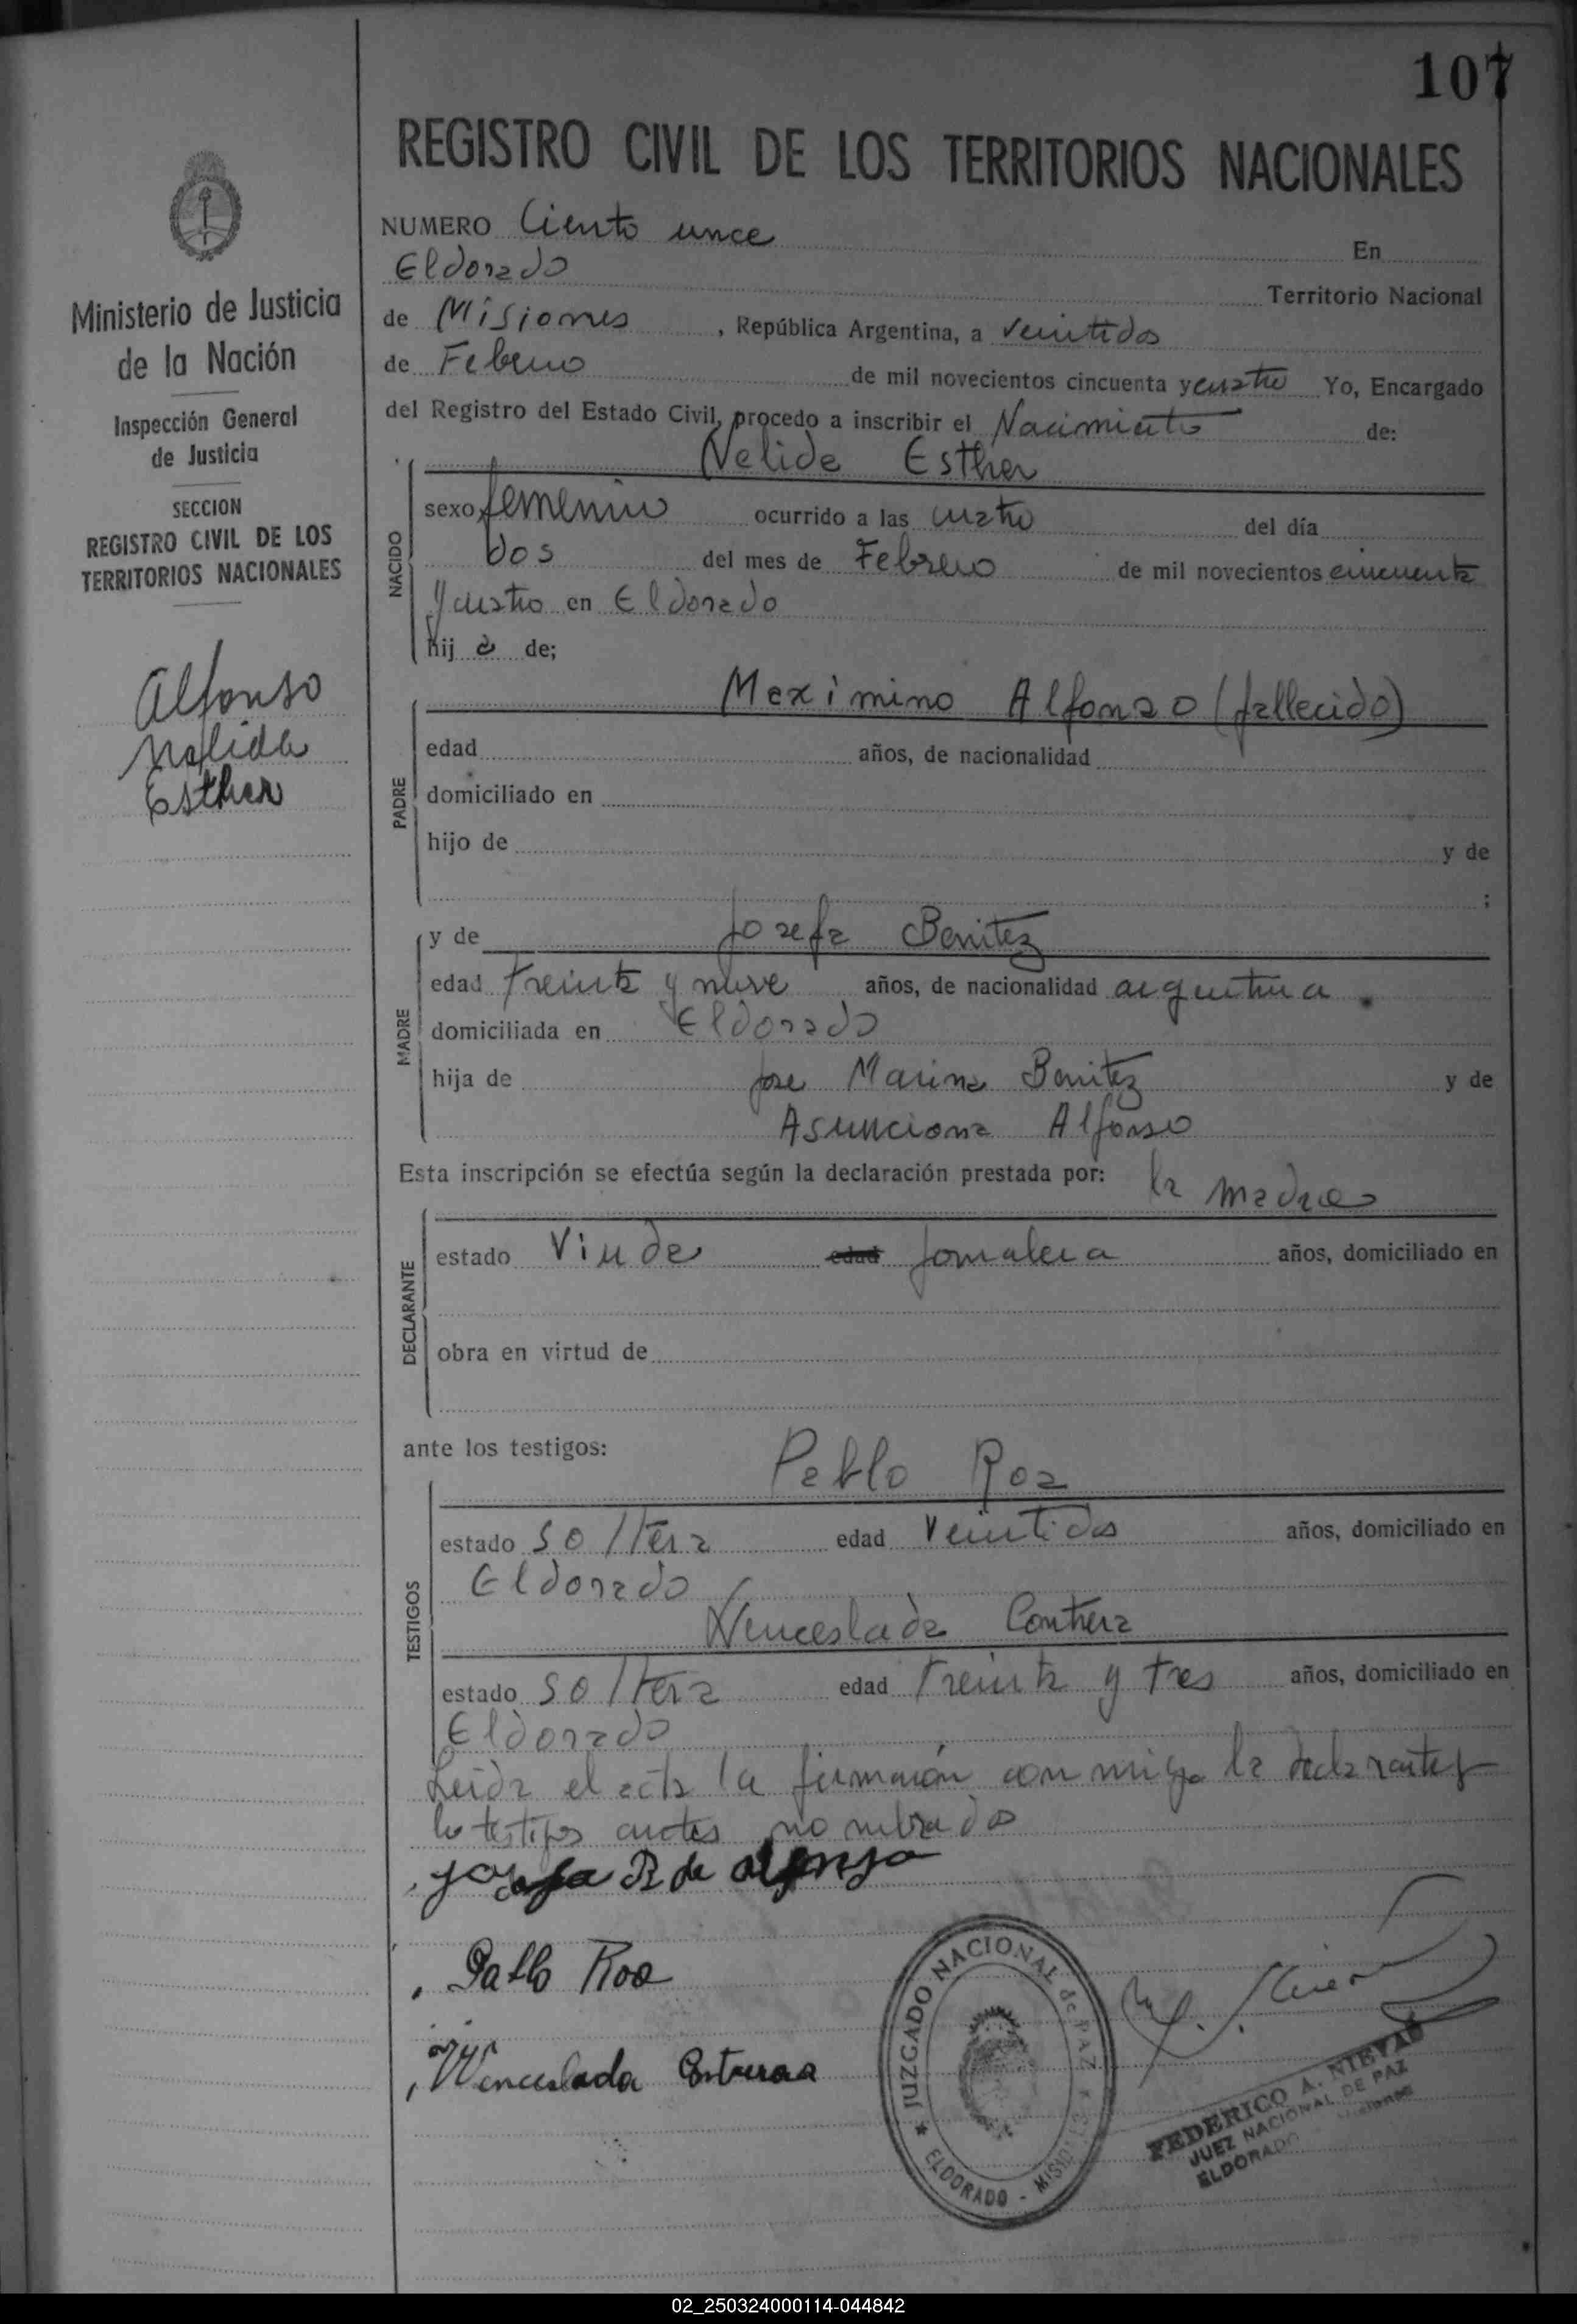 107
REGISTRO CIVIL DE LOS TERRITORIOS NACIONALES
Ministerio de Justicia
de la Nación
Inspección General
de Justicia
SECCION
REGISTRO CIVIL DE LOS
TERRITORIOS NACIONALES
Alfonso
Nelida
Esther
NUMERO Ciento once En
Eldorado Territorio Nacional
de Misiones , República Argentina, a veintidos
de Febrero de mil novecientos cincuenta y cuatro Yo, Encargado
del Registro del Estado Civil, procedo a inscribir el Nacimiento de:
NACIDO
Nelida Esther
sexo femenino ocurrido a las cuatro del día
dos del mes de Febrero de mil novecientos cincuenta
y cuatro en Eldorado
hij a de;
PADRE
Maximino Alfonso (fallecido)
edad años, de nacionalidad
domiciliado en
hijo de y de
;
MADRE
y de Josefa Benitez
edad treinta y nueve años, de nacionalidad argentina .
domiciliada en Eldorado
hija de Jose Marina Benitez y de
Asunciona Alfonso
Esta inscripción se efectúa según la declaración prestada por: la madre
DECLARANTE
estado Viuda edad Jornalera años, domiciliado en
obra en virtud de
ante los testigos:
TESTIGOS
Pablo Roa
estado soltera edad Veintidos años, domiciliado en
Eldorado
Wenceslada Contrera
estado soltera edad treinta y tres años, domiciliado en
Eldorado
Leida el acta la firmarón con migo la declarante y
los testigos antes nombrados
Josefa B de Alfonso
Pablo Roa
Wenceslada Contreras
JUZGADO NACIONAL de PAZ
ELDORADO - MISIONES
FEDERICO A. NIEVAS
JUEZ NACIONAL DE PAZ
ELDORADO Misiones
02_250324000114-044842